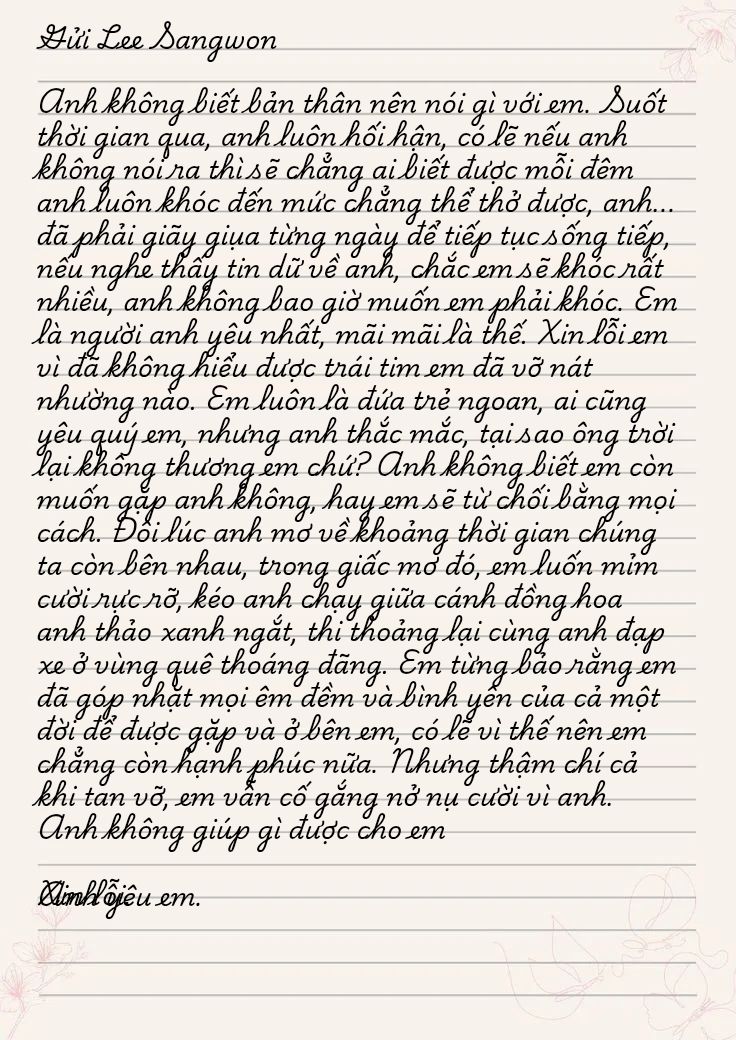 Gửi Lee Sangwon
Anh không biết bản thân nên nói gì với em. Suốt
thời gian qua, anh luôn hối hận, có lẽ nếu anh
không nói ra thì sẽ chẳng ai biết được mỗi đêm
anh luôn khóc đến mức chẳng thể thở được, anh...
đã phải giãy giụa từng ngày để tiếp tục sống tiếp,
nếu nghe thấy tin dữ về anh, chắc em sẽ khóc rất
nhiều, anh không bao giờ muốn em phải khóc. Em
là người anh yêu nhất, mãi mãi là thế. Xin lỗi em
vì đã không hiểu được trái tim em đã vỡ nát
nhường nào. Em luôn là đứa trẻ ngoan, ai cũng
yêu quý em, nhưng anh thắc mắc, tại sao ông trời
lại không thương em chứ? Anh không biết em còn
muốn gặp anh không, hay em sẽ từ chối bằng mọi
cách. Đôi lúc anh mơ về khoảng thời gian chúng
ta còn bên nhau, trong giấc mơ đó, em luốn mỉm
cười rực rỡ, kéo anh chạy giữa cánh đồng hoa
anh thảo xanh ngắt, thi thoảng lại cùng anh đạp
xe ở vùng quê thoáng đãng. Em từng bảo rằng em
đã góp nhặt mọi êm đềm và bình yên của cả một
đời để được gặp và ở bên em, có lẽ vì thế nên em
chẳng còn hạnh phúc nữa. Nhưng thậm chí cả
khi tan vỡ, em vẫn cố gắng nở nụ cười vì anh.
Anh không giúp gì được cho em
Xin lỗi.
Anh yêu em.